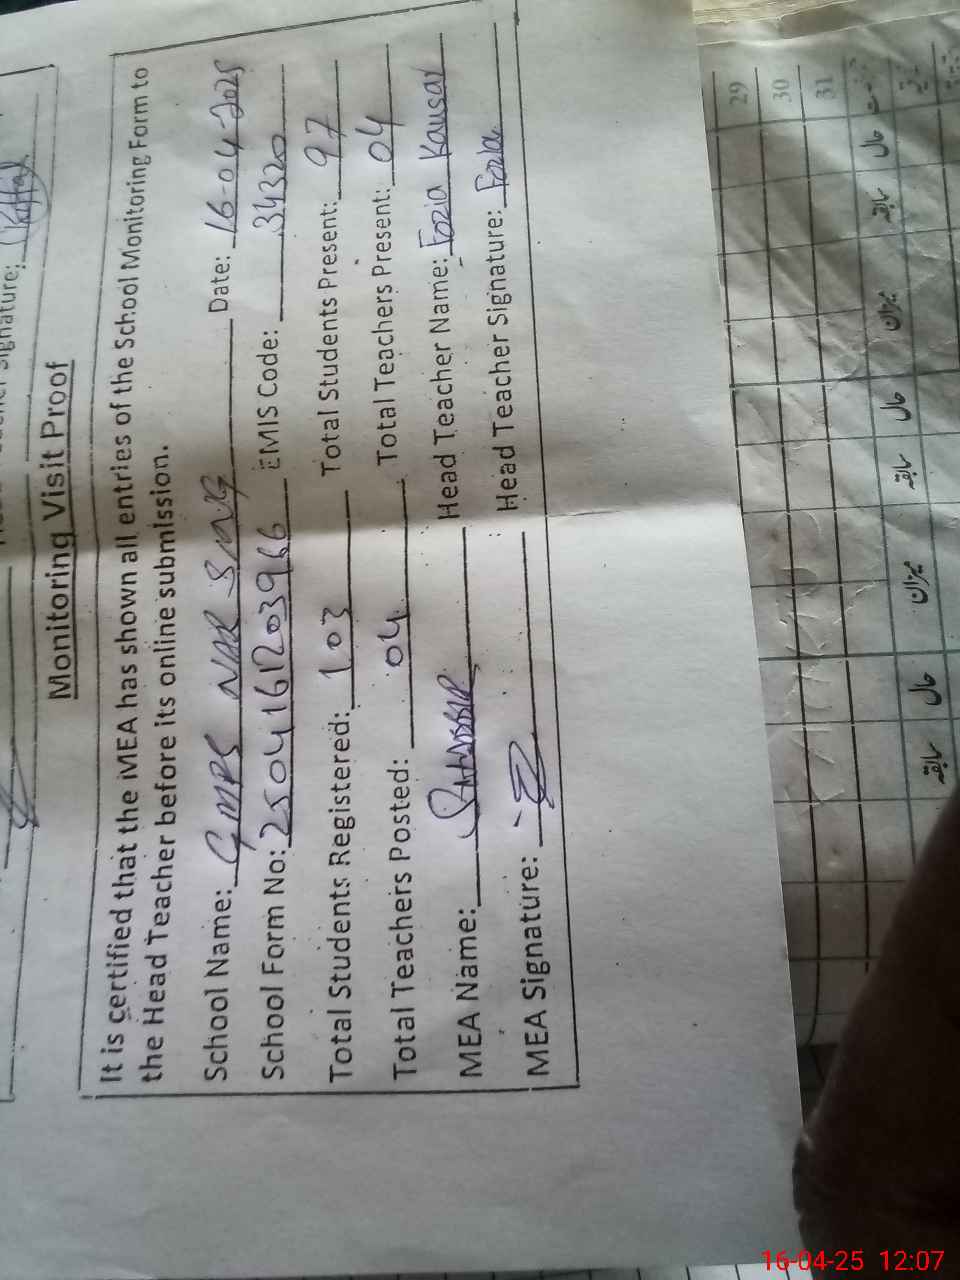 Signature:
Monitoring Visit Proof
It is certified that the MEA has shown all entries of the School Monitoring Form to
the Head Teacher before its online submission.
School Name: GMPS NAR SING Date: 16-04-2025
School Form No: 2504161203966 EMIS Code: 34320
Total Students Registered: 103 Total Students Present: 97
Total Teachers Posted: 04 Total Teachers Present: 04
MEA Name: Head Teacher Name: Fozia Kausar
MEA Signature: Head Teacher Signature: Fozia
29
30
31
سابقہ حال میزان سابقہ حال میزان سابقہ حال
16-04-25 12:07